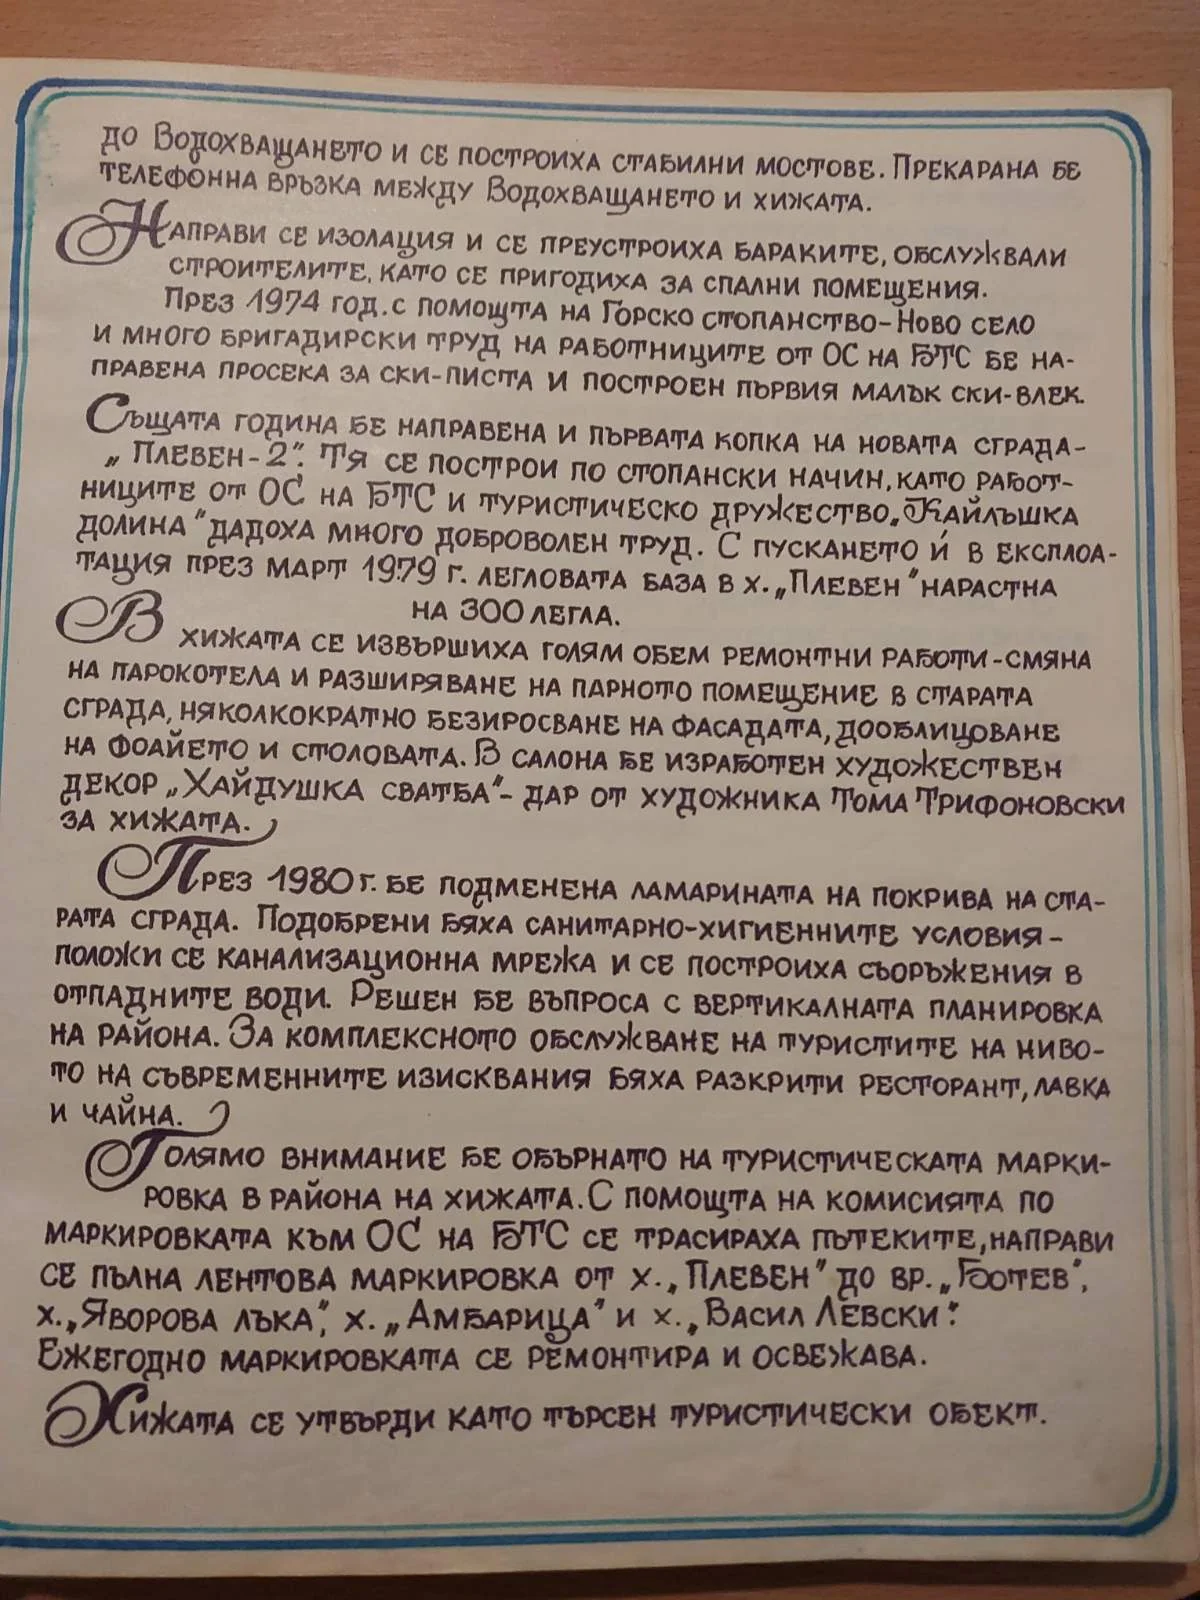 до Водохващането и се построиха стабилни мостове. Прекарана бе
телефонна връзка между Водохващането и хижата.
Направи се изолация и се преустроиха бараките, обслужвали
строителите, като се пригодиха за спални помещения.
През 1974 год. с помощта на Горско стопанство-Ново село
и много бригадирски труд на работниците от ОС на БТС бе на-
правена просека за ски-писта и построен първия малък ски-влек.
Същата година бе направена и първата копка на новата сграда-
„Плевен-2". Тя се построи по стопански начин, като работ-
ниците от ОС на БТС и туристическо дружество „Кайлъшка
долина" дадоха много доброволен труд. С пускането ѝ в експлоа-
тация през март 1979 г. легловата база в х. „Плевен" нарастна
на 300 легла.
В хижата се извършиха голям обем ремонтни работи-смяна
на парокотела и разширяване на парното помещение в старата
сграда, няколкократно безиросване на фасадата, дооблицоване
на фоайето и столовата. В салона бе изработен художествен
декор „Хайдушка сватба"- дар от художника Тома Трифоновски
за хижата.
През 1980 г. бе подменена ламарината на покрива на ста-
рата сграда. Подобрени бяха санитарно-хигиенните условия-
положи се канализационна мрежа и се построиха съоръжения в
отпадните води. Решен бе въпроса с вертикалната планировка
на района. За комплексното обслужване на туристите на ниво-
то на съвременните изисквания бяха разкрити ресторант, лавка
и чайна.
Голямо внимание бе обърнато на туристическата марки-
ровка в района на хижата. С помощта на комисията по
маркировката към ОС на БТС се трасираха пътеките, направи
се пълна лентова маркировка от х. „Плевен" до вр. „Ботев",
х. „Яворова лъка", х. „Амбарица" и х. „Васил Левски".
Ежегодно маркировката се ремонтира и освежава.
Хижата се утвърди като търсен туристически обект.